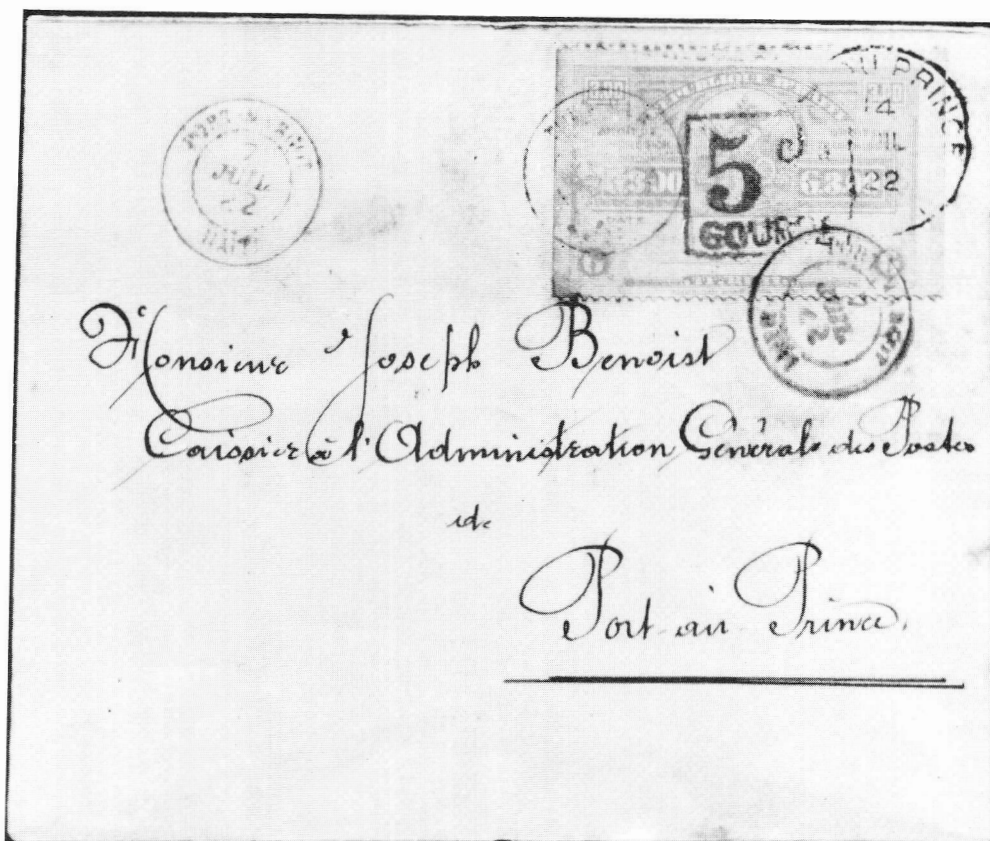 PORT-A-
7
JUIL
22
HAITI
AU PRINCE
14
JUIL
22
5
GOURDE
Monsieur Joseph Benoist
Caissier à l'Administration Générale des Postes
de
Port-au-Prince.